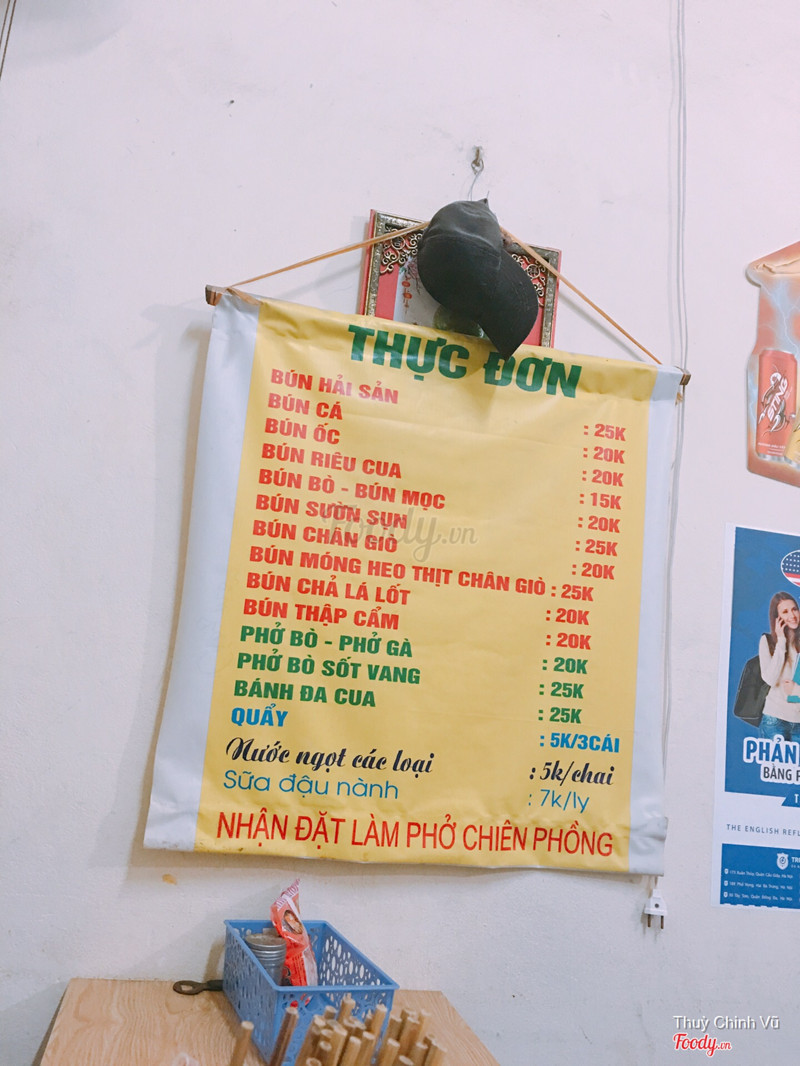 THỰC ĐƠN
BÚN HẢI SẢN : 25K
BÚN CÁ : 20K
BÚN ỐC : 20K
BÚN RIÊU CUA : 15K
BÚN BÒ - BÚN MỌC : 20K
BÚN SƯỜN SỤN : 25K
BÚN CHÂN GIÒ : 20K
BÚN MÓNG HEO THỊT CHÂN GIÒ : 25K
BÚN CHẢ LÁ LỐT : 20K
BÚN THẬP CẨM : 20K
PHỞ BÒ - PHỞ GÀ : 20K
PHỞ BÒ SỐT VANG : 25K
BÁNH ĐA CUA : 25K
QUẨY : 5K/3CÁI
Nước ngọt các loại : 5k/chai
Sữa đậu nành : 7k/ly
NHẬN ĐẶT LÀM PHỞ CHIÊN PHỒNG
Foody.vn
STING
PHẢN
BẰNG
THE ENGLISH REFL
Thuỳ Chinh Vũ
Foody.vn